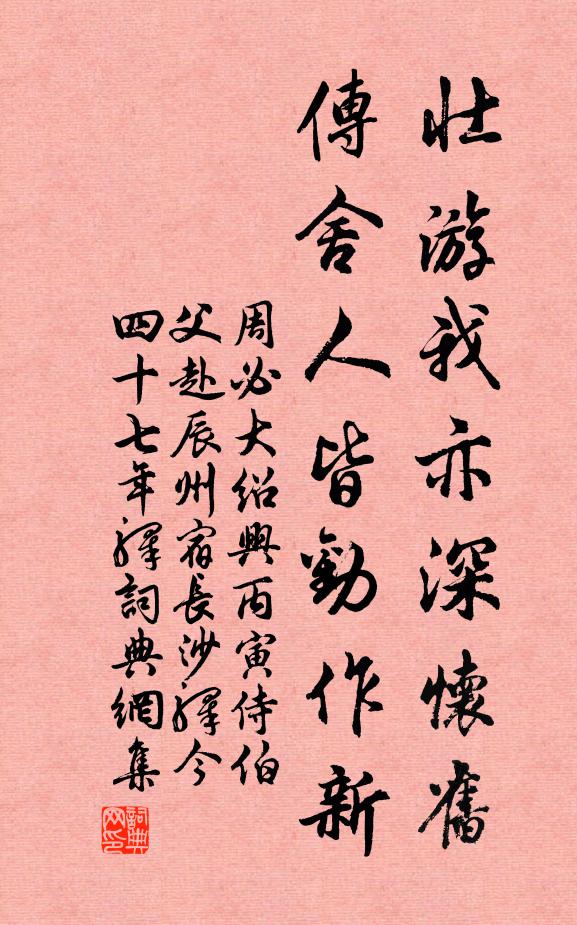 壮游我亦深懷舊
傳舍人皆勸作新
周必大紹興丙寅侍伯
父赴辰州宿長沙驛今
四十七年驛詞典網集
詞典网印